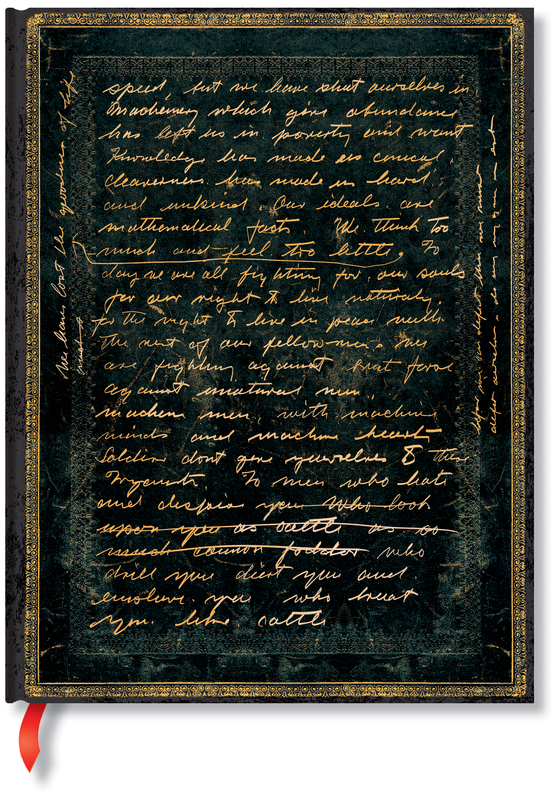 speed, but we have shut ourselves in
Machinery which gives abundance
has left us in poverty and want
Knowledge has made us cynical,
cleverness has made us hard
and unkind. Our ideals are
mathematical facts. We think too
much and feel too little. To
day we are all fighting for our souls
for our right to live naturally.
for the right to live in peace with
the rest of our fellow men. We
are fighting against that force
against unatural men
machine men, with machine
minds and machine hearts
Soldiers dont give yourselves to these
To men who hate
and despise you who look
upon you as cattle as so
much cannon fodder who
drill you diet you and
enslave you who treat
you like cattle
We have lost the goodness of life